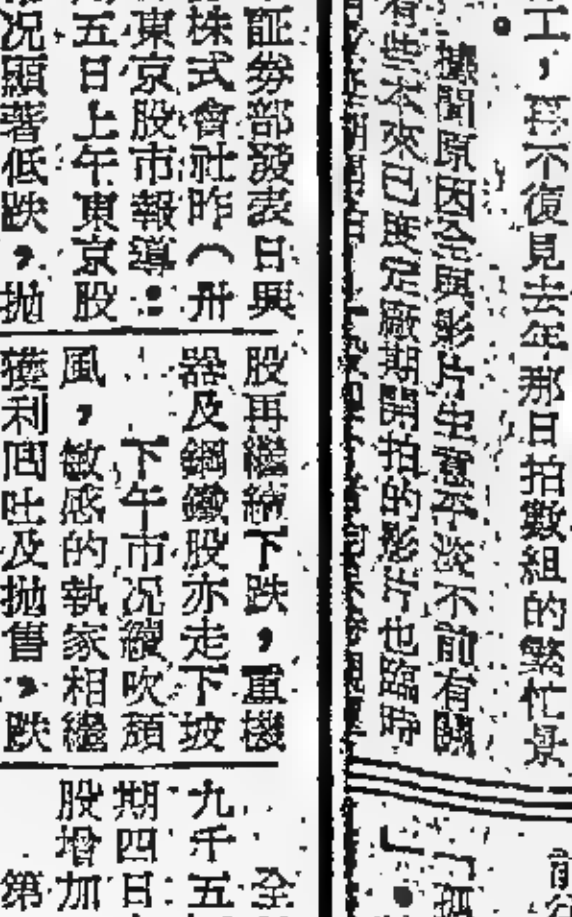 工，再不復見去年那日拍數組的繁忙景
。
據聞原因全與影片生意平淡不前有關
有些本來已度定廠期開拍的影片也臨時
証券部發表日興
株式會社昨（卅
東京股市報導：
五日上午東京股
况顯著低跌，拋
股再繼續下跌，重機
器及鋼鐵股亦走下坡
下午市况續吹頹
風，敏感的執家相繼
獲利回吐及拋售，跌
全
九千五
期四日
股增加
第